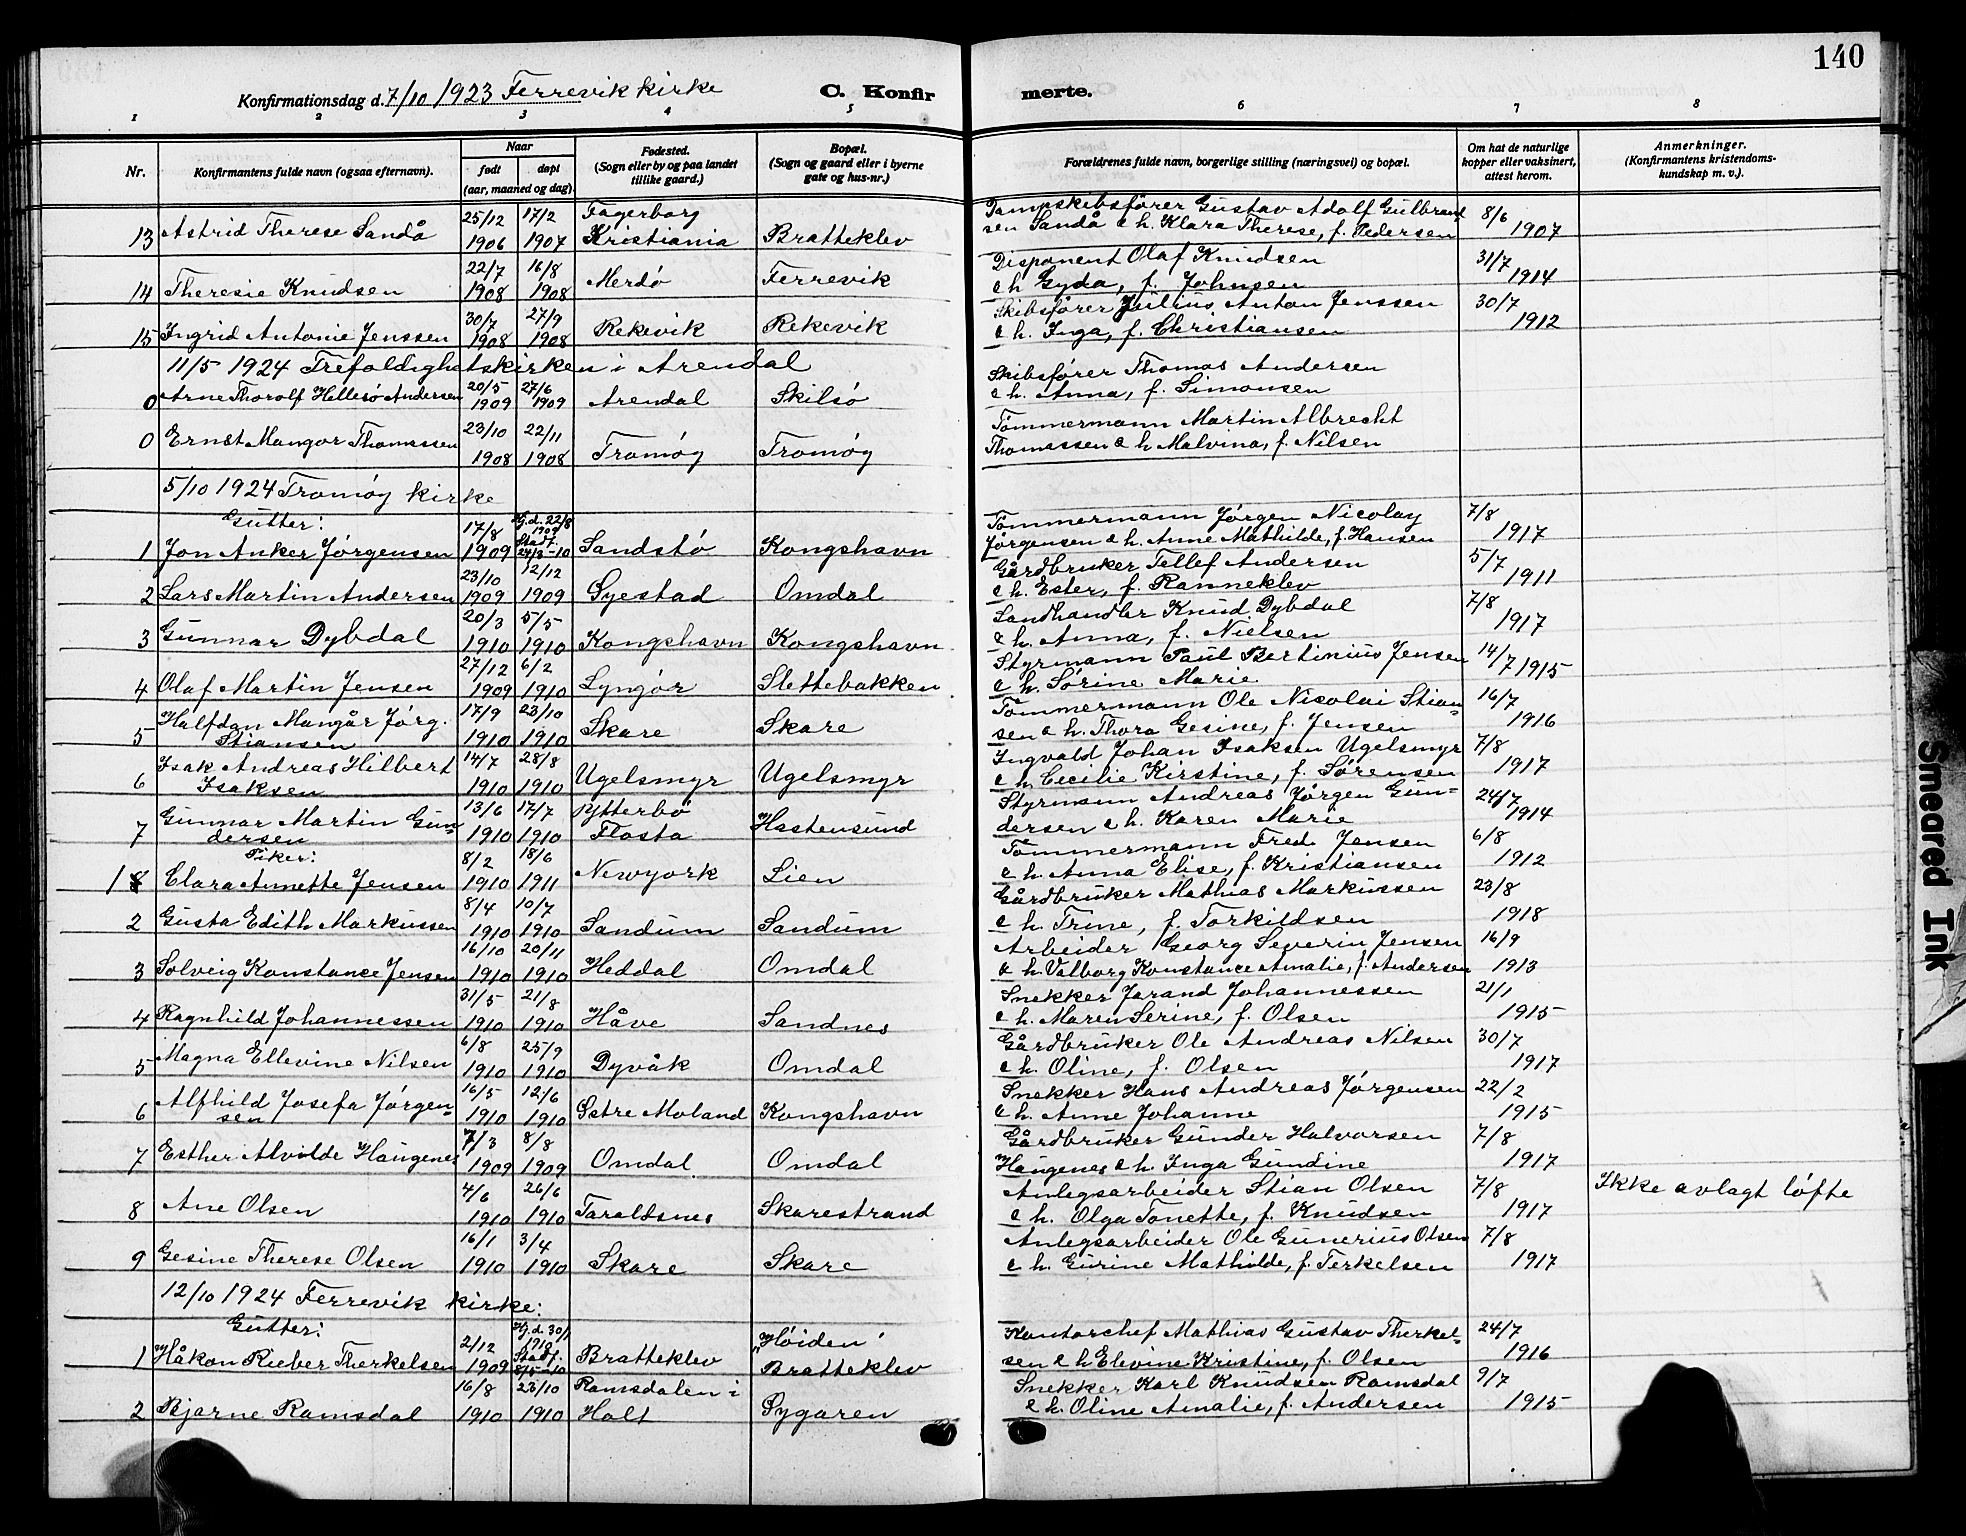 140
Konfirmationsdag d. 7/10 1923 Færrevik kirke
C. Konfirmerte.
1 2 3 4 5 6 7 8
Nr.
Konfirmantens fulde navn (ogsaa efternavn).
Naar
født døpt
(aar, maaned og dag)
Fødested.
(Sogn eller by og paa landet
tillike gaard.)
Bopæl.
(Sogn og gaard eller i byerne
gate og hus-nr.)
Forældrenes fulde navn, borgerlige stilling (næringsvei) og bopæl.
Om hat de naturlige
kopper eller vaksinert,
attest herom.
Anmerkninger.
(Konfirmantens kristendoms-
kundskap m. v.).
25/12 17/2 Fagerborg Dampskibsfører Gustav Adolf Gulbrand 8/6
13 Astrid Therese Sandå 1906 1907 Kristiania Bratteklev sen Sandå & h. Klara Therese, f. Pedersen 1907
22/7 16/8 Disponent Olaf Knudsen 31/7
14 Theresie Knudsen 1908 1908 Merdø Færrevik & h. Gyda, f. Johnsen 1914
30/7 27/9 Skibsfører Julius Anton Jenssen 30/7
15 Ingrid Antonie Jenssen 1908 1908 Rekevik Rekevik & h. Inga, f. Christiansen 1912
11/5 1924 Trefoldighetskirken i Arendal
20/5 27/6 Skibsfører Thomas Andersen
0 Arne Thorolf Hillesø Andersen 1909 1909 Arendal Skilsø & h. Anna, f. Simonsen
23/10 22/11 Tømmermann Martin Albrecht
0 Ernst Mangor Thomassen 1908 1908 Tromøy Tromøy Thomassen & h Malvina, f. Nilsen
5/10 1924 Tromøy kirke
Gutter: 17/8 Hj.d. 22/8 1909 Tømmermann Jørgen Nicolay 7/8
1 Jon Anker Jørgensen 1909 Stadf. 24/3-10 Sandstø Kongshavn Jørgensen & h. Anne Mathilde, f. Hansen 1917
23/10 12/12 Gårdbruker Tellef Andersen 5/7
2 Lars Martin Andersen 1909 1909 Gjestad Omdal & h. Ester, f. Ranneklev 1911
20/3 5/5 Landhandler Knud Dybdal 7/8
3 Gunnar Dybdal 1910 1910 Kongshavn Kongshavn & h. Anna, f. Nielsen 1917
27/12 6/2 Styrmann Paul Bertinius Jensen 14/7 1915
4 Olaf Martin Jensen 1909 1910 Lyngør Slettebakken & h. Sørine Marie
Halfdan Mangår Jørg. 17/9 23/10 Tømmermann Ole Nicolai Stian- 16/7
5 Stiansen 1910 1910 Skare Skare sen & h. Thora Gesine, f. Jensen 1916
Isak Andreas Hilbert 14/7 28/8 Ingvald Johan Isaksen Ugelsmyr 7/8
6 Isaksen 1910 1910 Ugelsmyr Ugelsmyr & h. Cecilie Kirstine, f. Sørensen 1917
Gunnar Martin Gun- 13/6 17/7 Ytterbø Styrmann Andreas Jørgen Gun- 24/7
7 dersen 1910 1910 Flosta Hastensund dersen & h. Karen Marie 1914
Piker: 8/2 18/6 Tømmermann Fred. Jensen 6/8
1 Clara Annette Jensen 1910 1911 Newyork Lien & h. Anna Elise, f. Kristiansen 1912
8/4 10/7 Gårdbruker Mathias Markussen 23/8
2 Gusta Edith Markussen 1910 1910 Sandum Sandum & h. Trine, f. Torkildsen 1918
16/10 20/11 Arbeider Georg Severin Jensen 16/9
3 Solveig Konstance Jensen 1910 1910 Heddal Omdal & h. Valborg Konstance Amalie, f. Andersen 1913
31/5 21/8 Snekker Jørand Johannessen 21/1
4 Ragnhild Johannessen 1910 1910 Håve Sandnes & h. Maren Serine, f. Olsen 1915
6/8 25/9 Gårdbruker Ole Andreas Nilsen 30/7
5 Magna Ellevine Nilsen 1910 1910 Dyvåk Omdal & h. Oline, f. Olsen 1917
Alfhild Josefa Jørgen- 16/5 12/6 Snekker Hans Andreas Jørgensen 22/2
6 sen 1910 1910 Østre Moland Kongshavn & h. Anne Johanne 1915
7/3 8/8 Gårdbruker Gunder Halvorsen 7/8
7 Esther Alvilde Haugenes 1909 1909 Omdal Omdal Haugenes & h. Inga Gundine 1917
4/6 26/6 Anlegsarbeider Stian Olsen 7/8 Ikke avlagt løfte
8 Ane Olsen 1910 1910 Taraldsnes Skarestrand & h. Olga Tonette, f. Knudsen 1917
16/1 3/4 Anlegsarbeider Ole Gunerius Olsen 7/8
9 Gesine Therese Olsen 1910 1910 Skare Skare & h. Gurine Mathilde, f. Terkelsen 1917
12/10 1924 Færrevik kirke:
Gutter: 2/12 Hj.d. 30/1 1910 Høiden Kontorchef Mathias Gustav Therkel- 24/7
1 Håkon Rieber Therkelsen 1909 Stadf. 8/5-10 Bratteklev Bratteklev sen & h Elevine Kristine, f. Olsen 1916
16/8 23/10 Ramsdalen i Snekker Karl Knudsen Ramsdal 9/7
2 Bjarne Ramsdal 1910 1910 Holt Pygaren & h. Oline Amalie, f. Andersen 1915
Smeared Ink